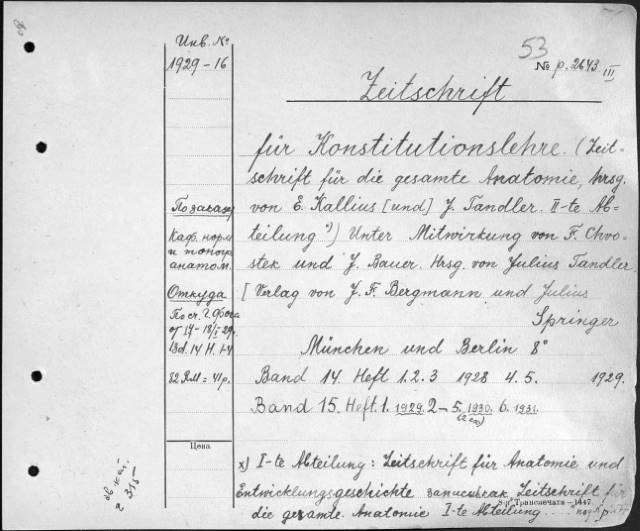 Инв. №
1929-16
53
№ p. 2643 III
Zeitschrift
für Konstitutionslehre. (Zeit-
schrift für die gesamte Anatomie, hrsg.
von E. Kallius [und] J. Tandler. II-te Ab-
teilung x)) Unter Mitwirkung von F. Chvo-
stek und J. Bauer. Hrsg. von Julius Tandler
[Verlag von J. F. Bergmann und Julius
Springer
München und Berlin 8°
Band 14. Heft 1. 2. 3 1928 4. 5. 1929.
Band 15. Heft. 1. 1929. 2-5. 1930. 6. 1931.
По заказу
Каф. норм.
и топогр.
анатом.
Откуда
По сч. г. Фока
от 17-18/I-29г.
Bd. 14 H. 1-4
82 RM = 41р.
Цена
x) I-te Abteilung: Zeitschrift für Anatomie und
Entwicklungsgeschichte Zeitschrift für
die gesamte Anatomie I-te Abteilung
Транспечати - 1447